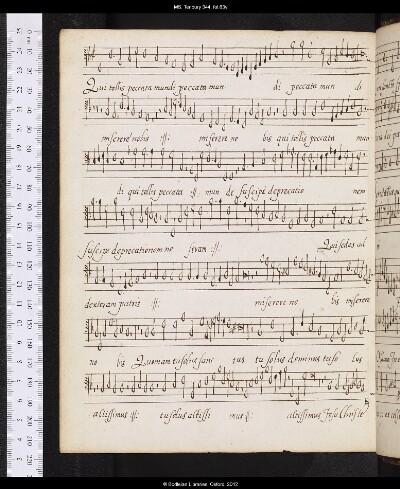 MS. Tenbury 344, fol.83v
Qui tollis peccata mundi peccata mun di peccata mun di
miserere nobis :||: miserere no bis qui tollis peccata mun
di qui tollis peccata :||: mun di suscipe deprecatio nem
suscipe deprecationem no stram :||: Qui sedes ad
dexteram patris :||: miserere no bis miserere
no bis Quoniam tu solus sanc tus tu solus dominus tu so lus
altissimus :||: tu solus altissi mus :||: altissimus Jesu Christe
© Bodleian Libraries, Oxford, 2012